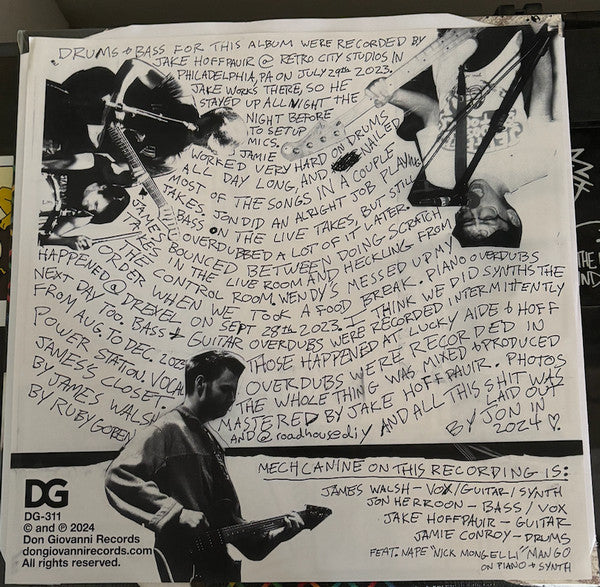 DRUMS + BASS FOR THIS ALBUM WERE RECORDED BY
JAKE HOFFPAUIR @ RETRO CITY STUDIOS IN
PHILADELPHIA, PA ON JULY 29TH 2023.
JAKE WORKS THERE, SO HE
STAYED UP ALL NIGHT THE
NIGHT BEFORE
TO SETUP
MICS.
JAMIE
WORKED VERY HARD ON DRUMS
ALL DAY LONG, AND NAILED
MOST OF THE SONGS IN A COUPLE
TAKES. JON DID AN ALRIGHT JOB PLAYING
BASS ON THE LIVE TAKES, BUT STILL
OVERDUBBED A LOT OF IT LATER.
JAMES BOUNCED BETWEEN DOING SCRATCH
TAKES IN THE LIVE ROOM AND HECKLING FROM
THE CONTROL ROOM. WENDY'S MESSED UP MY
ORDER WHEN WE TOOK A FOOD BREAK. PIANO OVERDUBS
HAPPENED @ DREXEL ON SEPT 28TH 2023. I THINK WE DID SYNTHS THE
NEXT DAY TOO. BASS + GUITAR OVERDUBS WERE RECORDED INTERMITTENTLY
FROM AUG. TO DEC. 2023. THOSE HAPPENED AT LUCKY AIDE + HOFF
POWER STATION. VOCAL OVERDUBS WERE RECORDED IN
JAMES'S CLOSET. THE WHOLE THING WAS MIXED + PRODUCED
MASTERED BY JAKE HOFFPAUIR. PHOTOS
BY JAMES WALSH AND @roadhousediy AND ALL THIS SHIT WAZ
BY RUBY GOREN
LAID OUT
BY JON IN
2024 ♡.
MECHCANINE ON THIS RECORDING IS:
JAMES WALSH - VOX/GUITAR/SYNTH
JON HERROON - BASS/VOX
JAKE HOFFPAUIR - GUITAR
JAMIE CONROY - DRUMS
FEAT. NAPE "NICK MONGELLI" MANGO
ON PIANO + SYNTH
DG
DG-311
© and ℗ 2024
Don Giovanni Records
dongiovannirecords.com
All rights reserved.